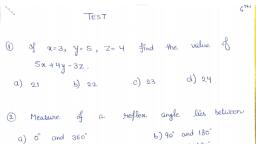 6th
TEST
① If x=3, y=5, z=4 find the value of
5x+4y-3z.
a) 21 b) 22 c) 23 d) 24
② Measure of a reflex angle lies between
a) 0° and 360° b) 90° and 180°